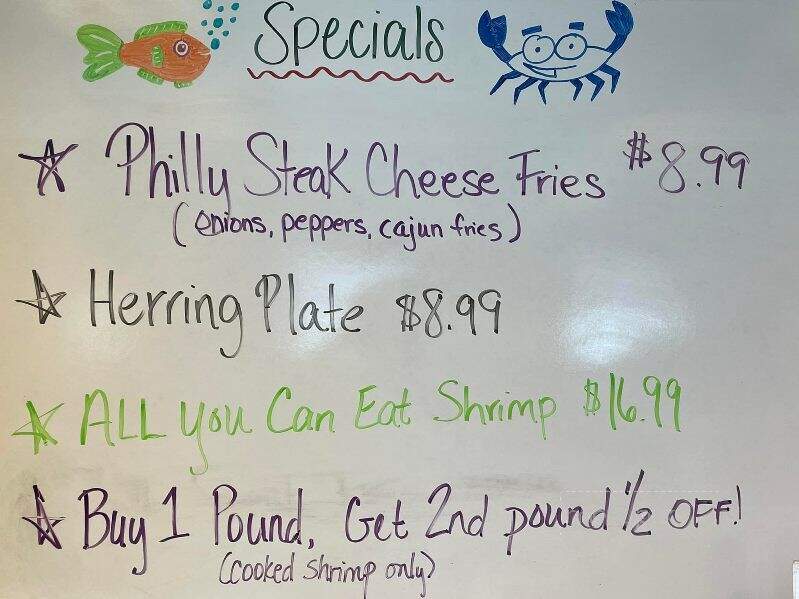 Specials
Philly Steak Cheese Fries $8.99
(onions, peppers, cajun fries)
Herring Plate $8.99
ALL you Can Eat Shrimp $16.99
Buy 1 Pound, Get 2nd pound 1/2 OFF!
(cooked shrimp only)